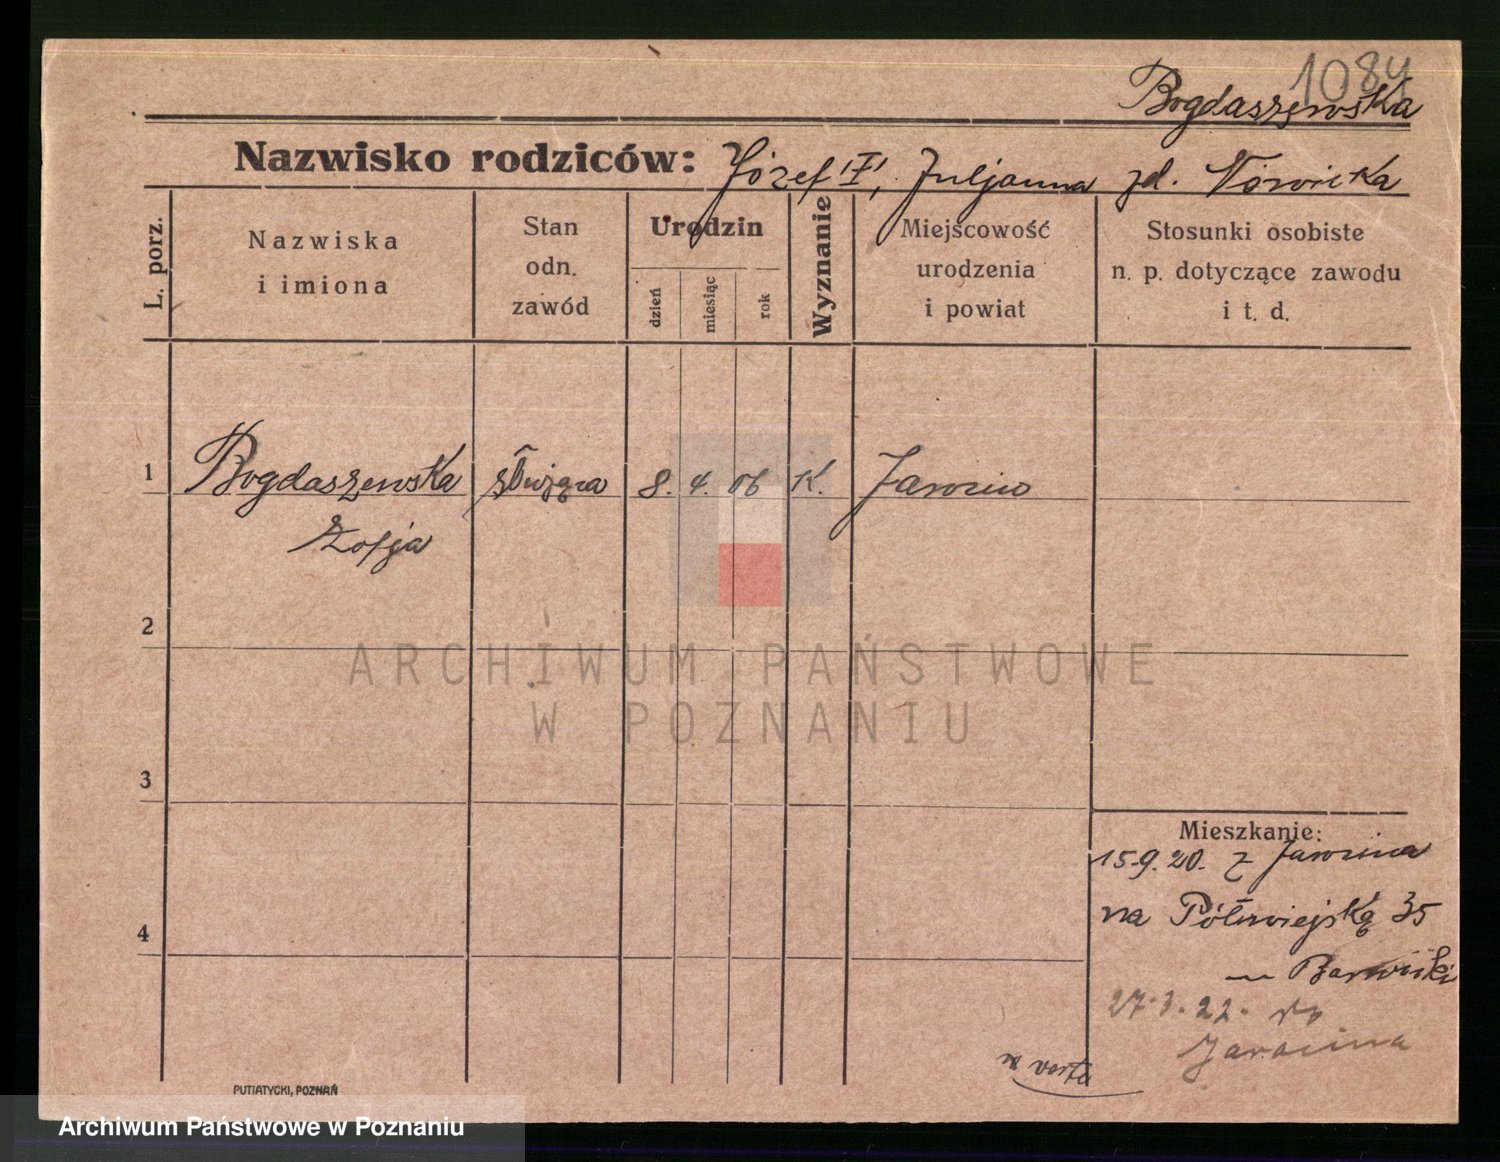 1084
Bogdaszewska
Nazwisko rodziców: Józef "I", Juljanna zd. Nowicka
L. porz.
Nazwiska
i imiona
Stan
odn.
zawód
Urodzin
dzień
miesiąc
rok
Wyznanie
Miejscowość
urodzenia
i powiat
Stosunki osobiste
n. p. dotyczące zawodu
i t. d.
1 Bogdaszewska służąca 8. 4. 06 K. Jarocin
Zofja
2
ARCHIWUM PAŃSTWOWE
W POZNANIU
3
Mieszkanie:
15.9.20. z Jarocina
na Półwiejską 35
4
27.3.22. do
Jarocina
PUTIATYCKI, POZNAŃ
Archiwum Państwowe w Poznaniu